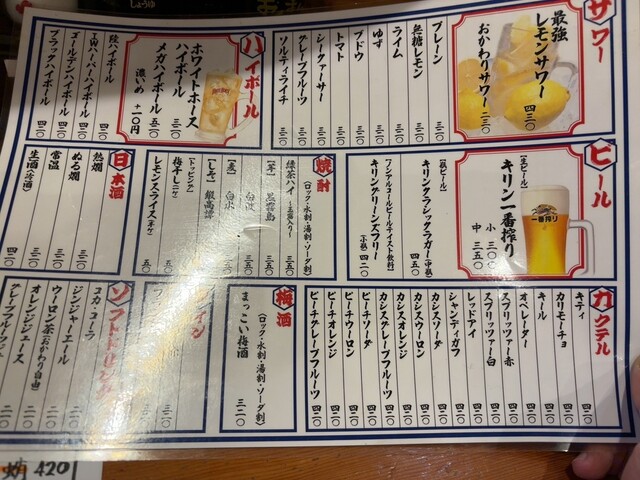 しょうゆ
サワー
最強
レモンサワー
四三〇
おかわりサワー 二三〇
プレーン 三二〇
無糖レモン 三二〇
ライム 三二〇
ゆず 三二〇
ブドウ 三二〇
トマト 三二〇
シークァーサー 三二〇
グレープフルーツ 三二〇
ソルティライチ 三二〇
ハイボール
ホワイトホース
ハイボール 三二〇
メガハイボール 五二〇
濃いめ +一〇円
陸ハイボール 四二〇
I.Wハーパーハイボール 四二〇
ゴールデンハイボール 四二〇
ブラックハイボール 四二〇
ビール
[生ビール]
キリン一番搾り
小 三〇〇
中 三五〇
一番搾り
[瓶ビール]
キリンクラシックラガー(中瓶) 四五〇
[ノンアルコールビールテイスト飲料]
キリングリーンズフリー
(小瓶) 四二〇
焼酎
(ロック・水割・湯割・ソーダ割)
緑茶ハイ
[芋] 黒霧島 三五〇
[麦]
[米] 白水
[しそ] 鍛高譚
[トッピング]
梅干し(二ケ) 五〇
レモンスライス 五〇
日本酒
熱燗 三二〇
ぬる燗 三二〇
常温 三二〇
生酒(冷酒) 四二〇
カクテル
キティ 四二〇
カリモーチョ 四二〇
キール 四二〇
オペレーター 四二〇
スプリッツァー赤 四二〇
スプリッツァー白 四二〇
レッドアイ 四二〇
シャンディガフ 四二〇
カシスソーダ 四二〇
カシスオレンジ 四二〇
カシスウーロン 四二〇
カシスグレープフルーツ 四二〇
ピーチソーダ 四二〇
ピーチウーロン 四二〇
ピーチオレンジ 四二〇
ピーチグレープフルーツ 四二〇
梅酒
(ロック・水割・湯割・ソーダ割)
まっこい梅酒 三二〇
ワイン
ソフトドリンク
コカ・コーラ
ジンジャーエール 二一〇
ウーロン茶(おかわり自由) 二一〇
オレンジジュース 二一〇
グレープフルーツ 二一〇
420